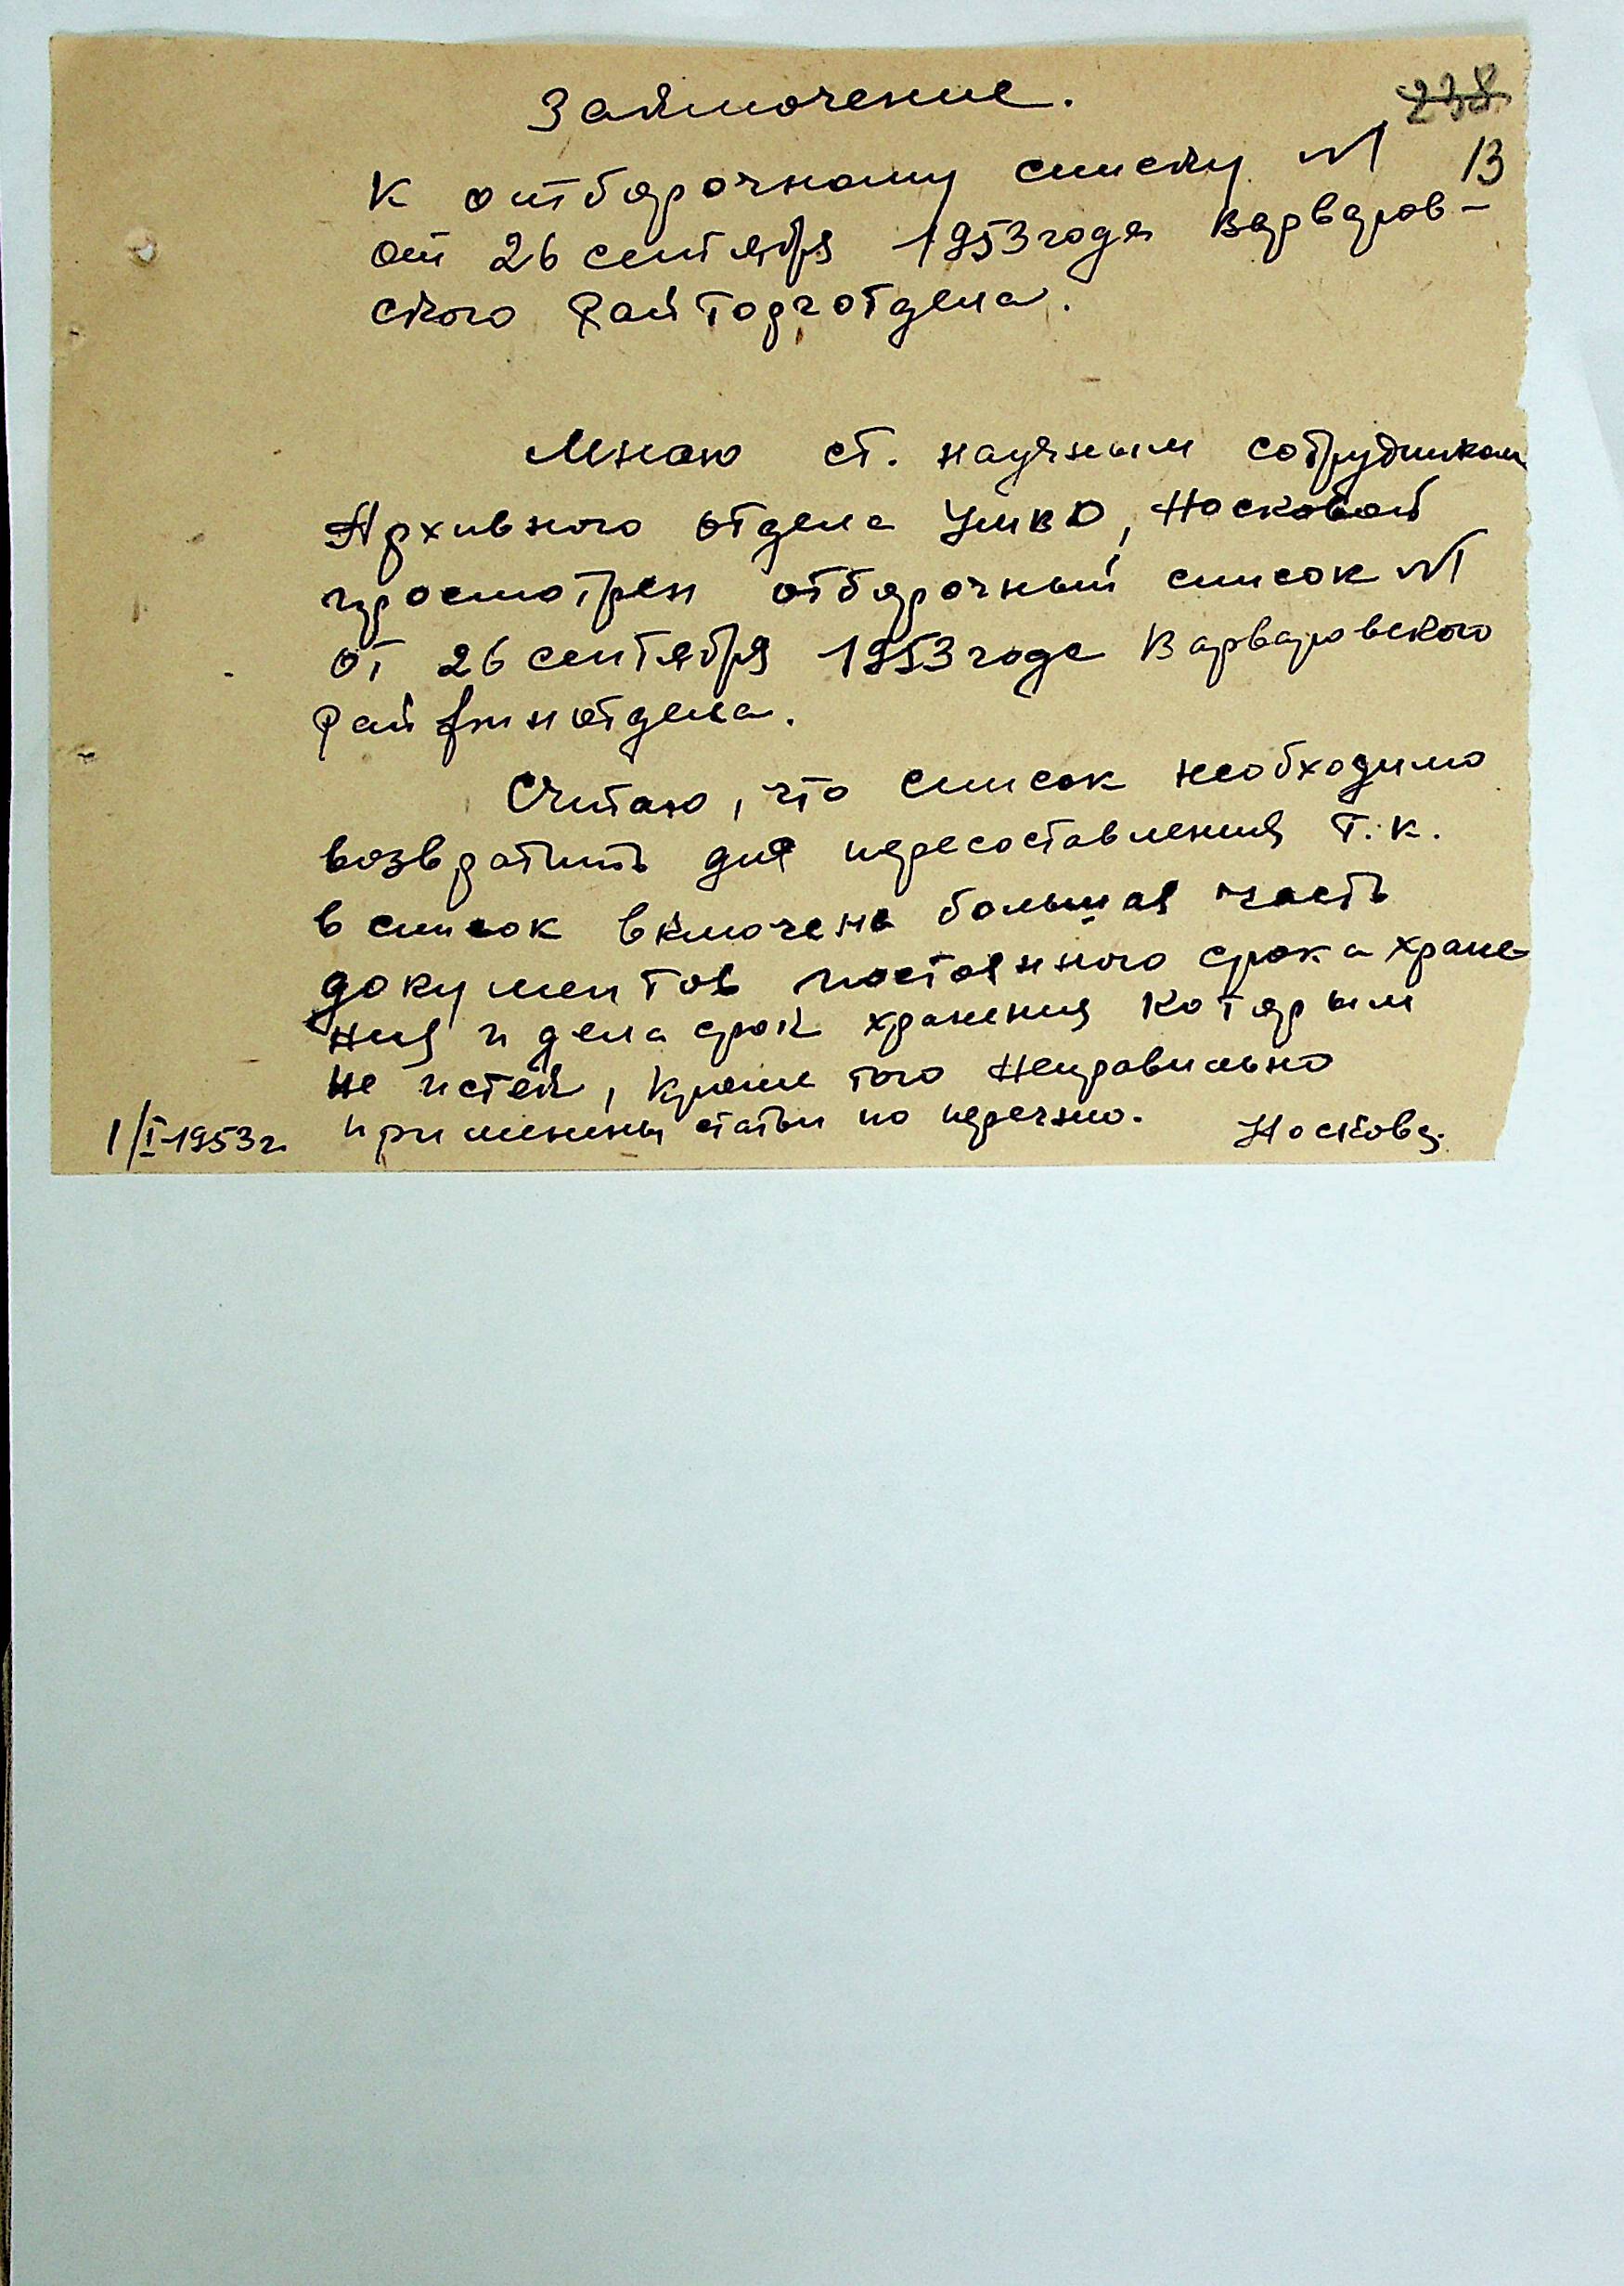 Заключение.
238
13
К отборочному списку №1
от 26 сентября 1953 года Варваров-
ского Райторготдела.
Мною ст. научным сотрудником
Архивного отдела УМВД, Носковой
просмотрен отборочный список №1
от 26 сентября 1953 года Варваровского
Райфинотдела.
Считаю, что список необходимо
возвратить для пересоставления т.к.
в список включена большая часть
документов постоянного срока хране-
ния и дела срок хранения которым
не истек, кроме того неправильно
применены статьи по перечню.
1/I-1953г.
Носкова.